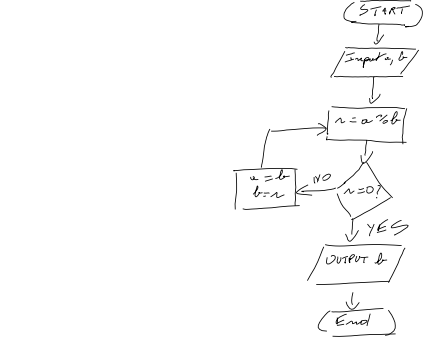 START
Input a, b
r = a % b
r = 0?
NO
a = b
b = r
YES
OUTPUT b
End